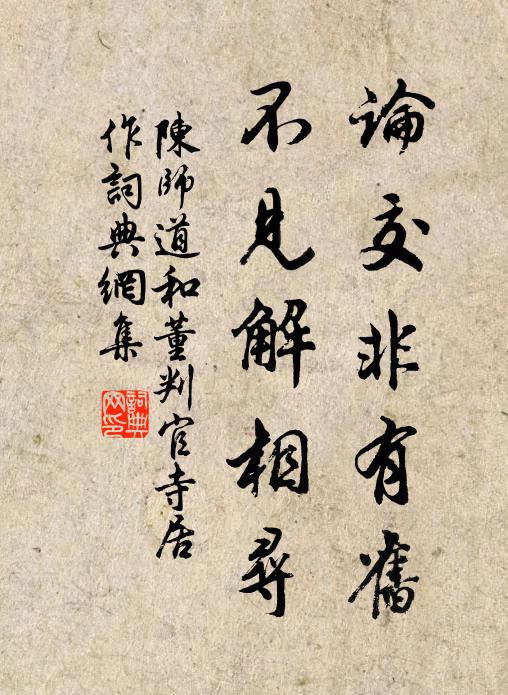 論交非有舊
不見解相尋
陳師道和董判官寺居
作詞典網集
詞典網印